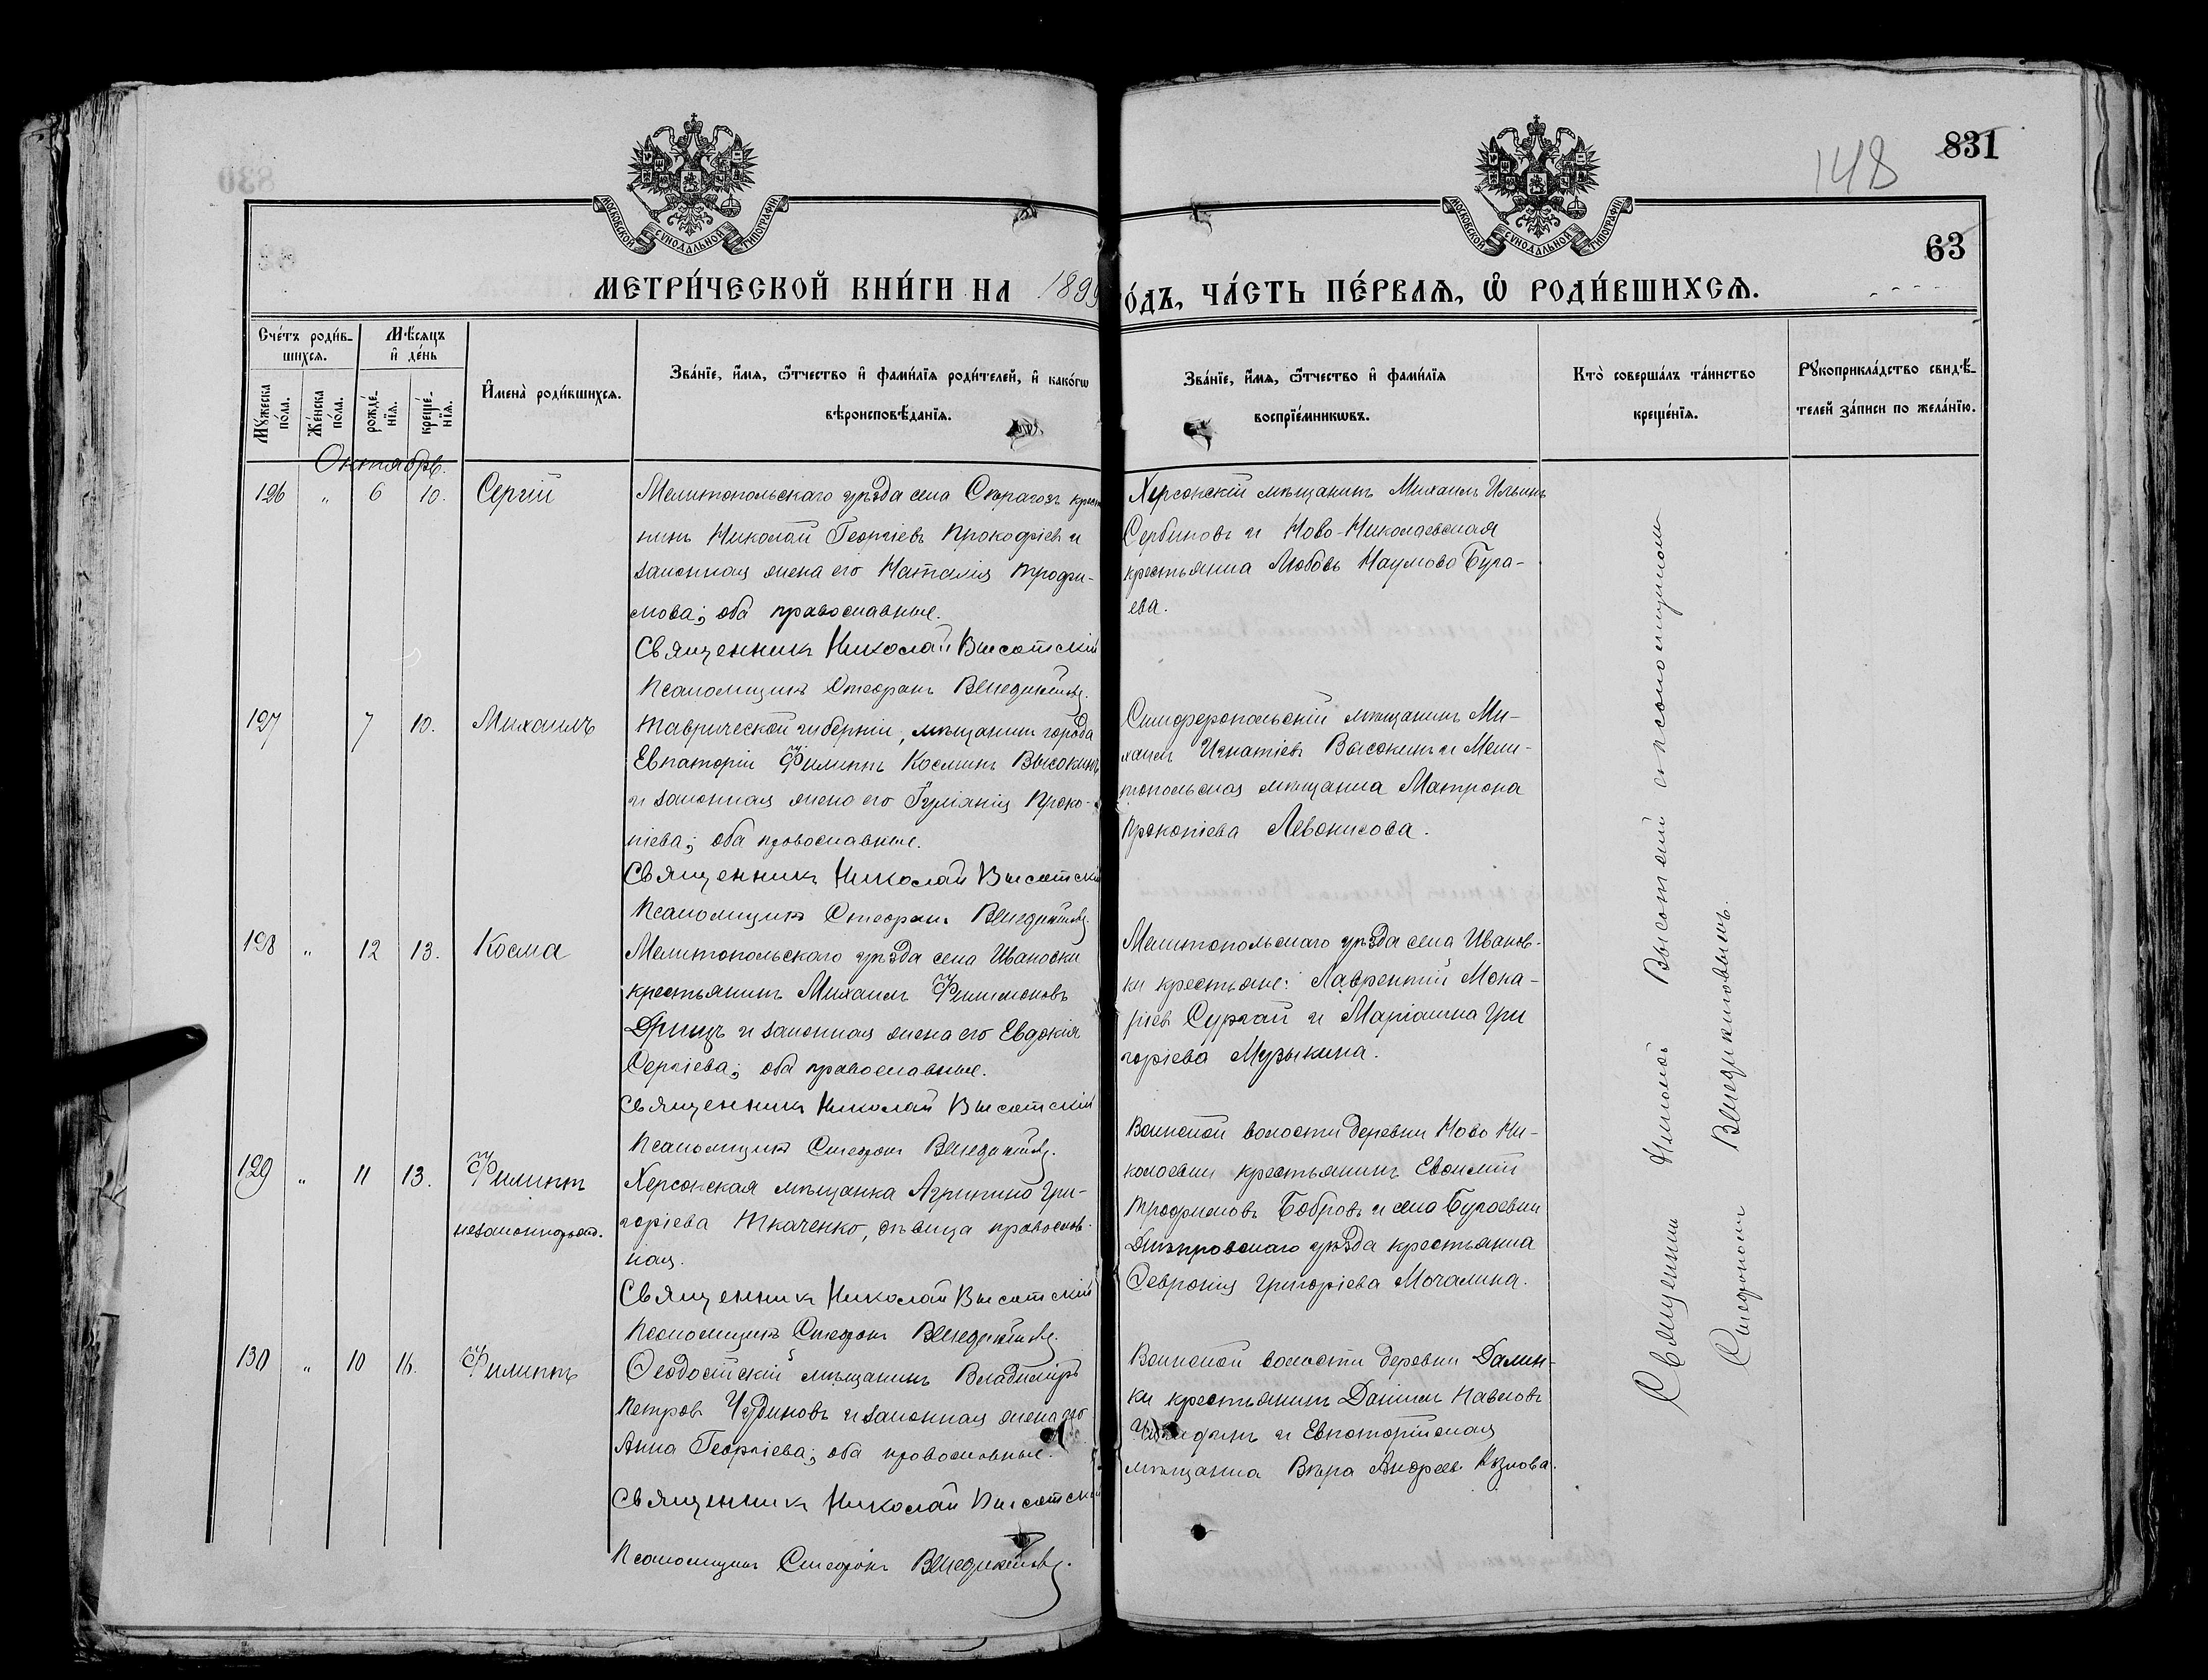 831
148
63
МОСКОВСКОЙ СѴНОДАЛЬНОЙ ТИПОГРАФІИ
МОСКОВСКОЙ СѴНОДАЛЬНОЙ ТИПОГРАФІИ
МЕТРИ́ЧЕСКОЙ КНИ́ГИ НА 1899
О́ДЪ, ЧА́СТЬ ПЕ́РВАѦ, Ѽ РОДИ́ВШИХСѦ.
Сче́тъ роди́в-
шихсѧ.
Мѣ́сѧцъ
и҆ де́нь
Мꙋ́жеска
по́ла.
Же́нска
по́ла.
рожде́-
нїѧ.
креще́-
нїѧ.
И҆мена̀ роди́вшихсѧ.
Зва́нїе, и҆́мѧ, ѻ҆́тчество и҆ фами́лїѧ роди́телей, и҆ како́гѡ
вѣроисповѣ́данїѧ.
Зва́нїе, и҆́мѧ, ѻ҆́тчество и҆ фами́лїѧ
воспрїе́мникѡвъ.
Кто̀ соверша́лъ та́инство
креще́нїѧ.
Рꙋкоприкла́дство свидѣ́-
телей за́писи по жела́нїю.
Октябрь.
126 " 6 10. Сергій
Мелитопольскаго уѣзда села Серагозъ крестья
нинъ Николай Георгіевъ Прокофіевъ и
законная жена его Наталія Трофи-
мова; оба православные.
Священникъ Николай Высотскій
Псаломщикъ Стефанъ Венедиктовъ.
Херсонскій мѣщанинъ Михаилъ Ильинъ
Сербиновъ и Ново-Николаевская
крестьянка Любовь Наумова Буга-
ева.
127 7 10. Михаилъ
Таврической губерніи, мѣщанинъ города
Евпаторіи Филиппъ Косминъ Высокинъ
и законная жена его Іуліанія Проко-
піева; оба православные.
Священникъ Николай Высотскій
Псаломщикъ Стефанъ Венедиктовъ.
Симферопольскій мѣщанинъ Ми-
хаилъ Игнатіевъ Высокинъ и Мели-
топольская мѣщанка Матрона
Прокопіева Левонисова.
128 " 12 13. Косма
Мелитопольскаго уѣзда села Ивановки
крестьянинъ Михаилъ Филимоновъ
Дрищъ и законная жена его Евдокія
Сергіева; оба православные.
Священникъ Николай Высотскій
Псаломщикъ Стефанъ Венедиктовъ.
Мелитопольскаго уѣзда села Иванов-
ки крестьяне: Лаврентій Мака-
ріевъ Сургай и Маріанна Гри
горіева Музыкина.
129 " 11 13. Филиппъ
незаконнорожд.
Херсонская мѣщанка Агрипина Гри-
горіева Ткаченко, дѣвица православ-
ная.
Священникъ Николай Высотскій
Псаломщикъ Стефанъ Венедиктовъ.
Воинской волости деревни Ново Ни-
колаевки крестьянинъ Евѳимій
Трофимовъ Бобровъ и села Бугаевки
Днѣпровскаго уѣзда крестьянка
Февронія Григоріева Мочалина.
130 " 10 16. Филиппъ
Ѳеодосійскій мѣщанинъ Владиміръ
Петровъ Чудиновъ и законная жена его
Анна Георгіева; оба православные.
Священникъ Николай Высотскій
Псаломщикъ Стефанъ Венедиктовъ.
Воинской волости деревни Далин-
ки крестьянинъ Даніилъ Павловъ
и Евпаторійская
мѣщанка Вѣра Андреева Козлова.
Священникъ Николай Высотскій съ псаломщикомъ
Стефаномъ Венедиктовымъ.